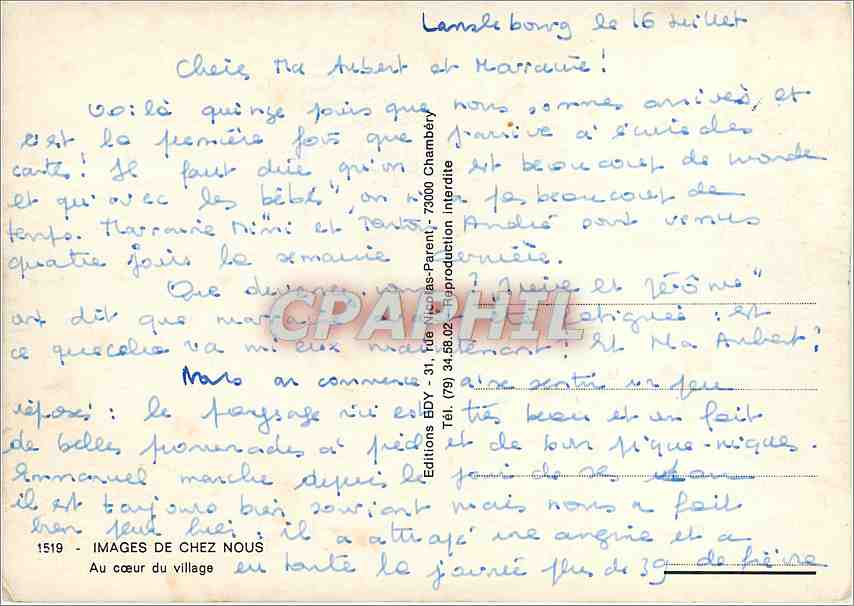 Lanslebourg le 16 Juillet
Chers Ma Aubert et Marraine!
Voilà quinze jours que nous sommes arrivés, et
c'est la première fois que j'arrive à écrire des
cartes! Il faut dire qu'on est beaucoup de monde
et qu'avec les "bébés" on n'a pas beaucoup de
temps. Marraine Mimi et Tonton André sont venus
quatre jours la semaine dernière.
Que devenez vous? et Jérôme
ont dit que fatiguée : est
ce que cela va mieux maintenant? et Ma Aubert?
Nous on commence à se sentir un peu
reposé : le paysage ici est très beau et on fait
de belles promenades à pied et de bon pique-niques.
Emmanuel marche depuis le jour de ses
il est toujours bien souriant mais nous a fait
bien peur hier : il a attrapé une angine et a
eu toute la journée plus de 39 de fièvre
Editions EDY - 31, rue Nicolas-Parent - 73000 Chambéry
Tél. (79) 34.58.02 - Reproduction interdite
CPAPHIL
1519 - IMAGES DE CHEZ NOUS
Au cœur du village